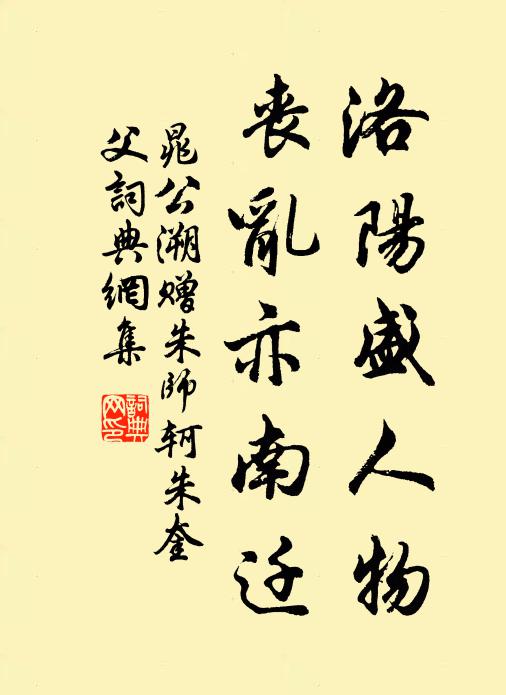 洛陽盛人物
喪亂亦南迁
晁公溯贈朱師軻朱奎
父詞典網集
詞典
网印